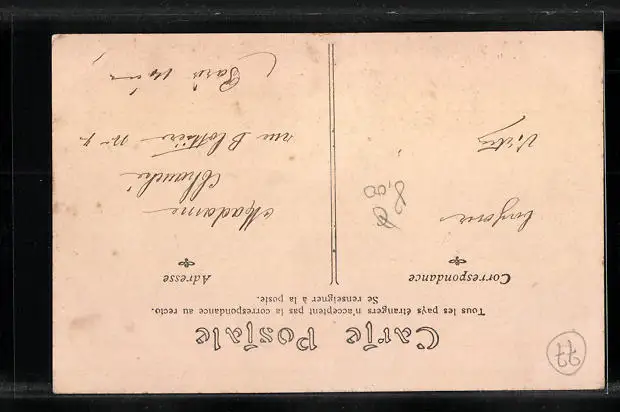 Carte Postale
Tous les pays étrangers n'acceptent pas la correspondance au recto.
Se renseigner à la poste.
Correspondance
Adresse
Madame
rue Blottière no 7
Paris 14 em
8,00
77